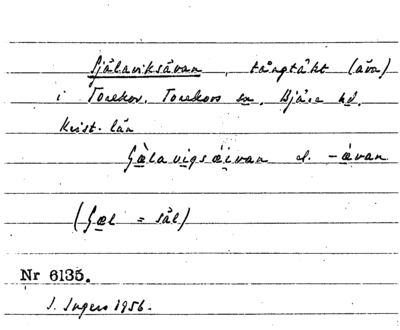 Själaviksåvan, tångtäkt (åva)
i Torekov, Torekovs sn, Bjäre hd,
Krist. län
Sæ̀lavigsæ̀ivan el. -æ̀van
(Sæl = säl)
Nr 6135.
I. Ingers 1956.